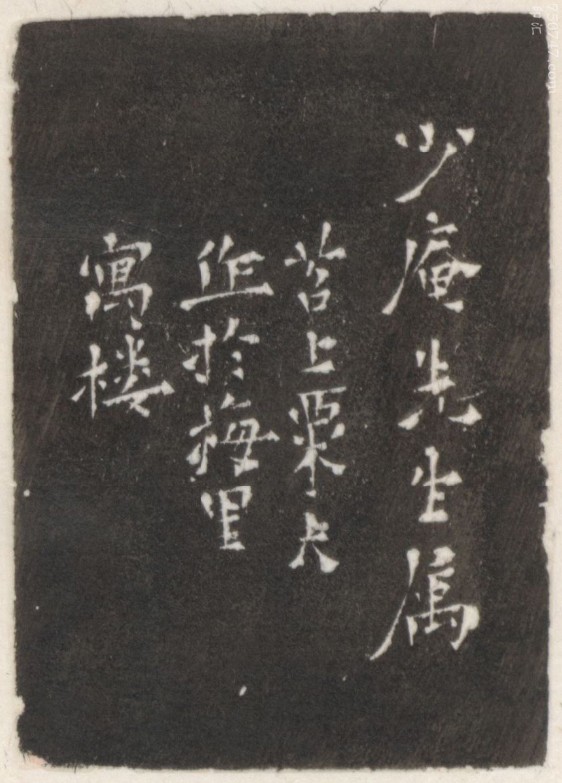 少庵先生属
苕上粟夫
作於梅里
寓楼